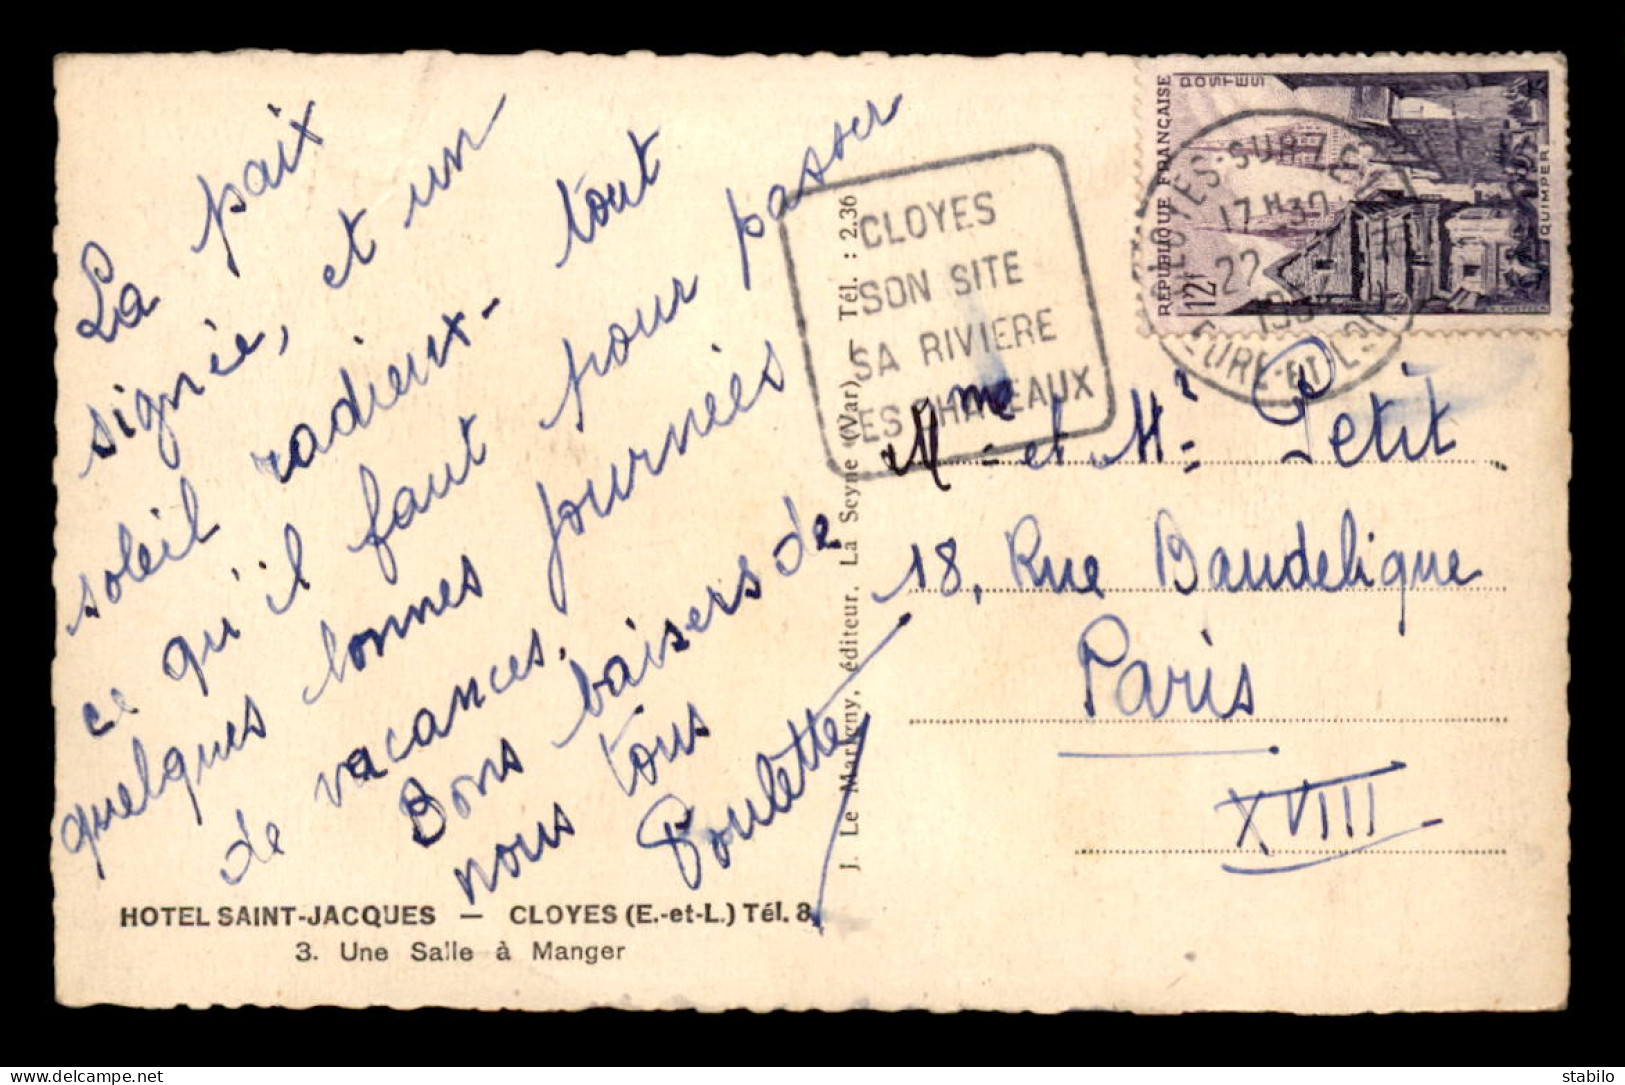 La paix
signée, et un
soleil radieux - tout
ce qu'il faut pour passer
quelques bonnes journées
de vacances.
Bons baisers de
nous tous
Poulette
HOTEL SAINT-JACQUES — CLOYES (E.-et-L.) Tél. 8
3. Une Salle à Manger
J. Le Marigny, éditeur, La Seyne (Var) - Tél. : 2.36
CLOYES
SON SITE
SA RIVIERE
SES CHATEAUX
REPUBLIQUE FRANÇAISE
POSTES
12F
QUIMPER
CLOYES-SUR-LE
17H30
22
EURE-ET-LOIR
Mme et Mr Petit
18, Rue Baudelique
Paris
XVIII
stabilo